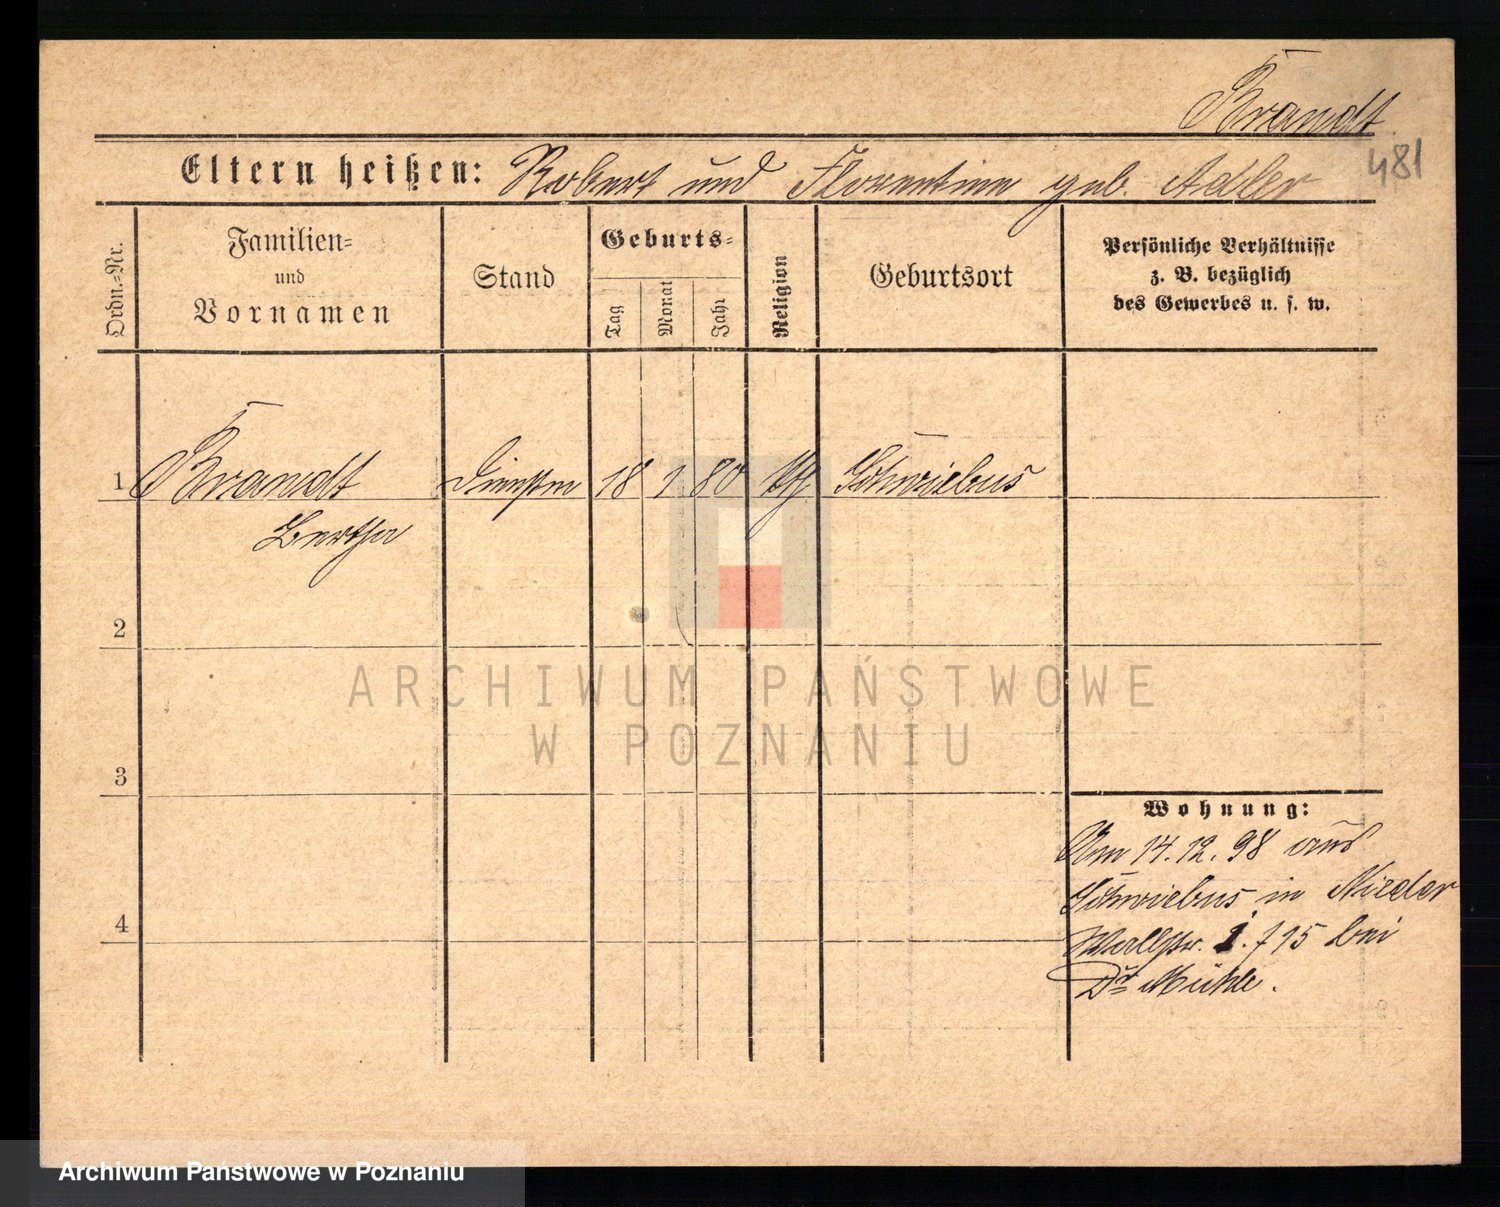 Brandt
481
Eltern heißen: Robert und Florentine geb. Adler
Ordn.-Nr.
Familien-
und
Vornamen
Stand
Geburts-
Tag
Monat
Jahr
Religion
Geburtsort
Persönliche Verhältnisse
z. B. bezüglich
des Gewerbes u. s. w.
1 Brandt 18 1 80 Schwiebus
Bertha
2
ARCHIWUM PAŃSTWOWE
W POZNANIU
3
Wohnung:
Am 14.12.98 aus
Schwiebus in Nieder
4
Wallstr. 1. 15 bei
Dr Mühle.
Archiwum Państwowe w Poznaniu